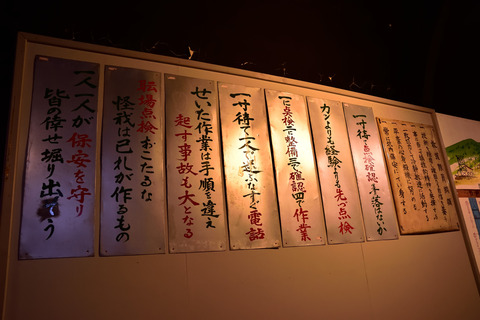 一寸待て点検確認手落はないか
カンよりも経験よりも先づ点検
一に点検二に整備三で確認四で作業
一寸待て一人で起すなすぐ電話
せいた作業は手順を違え
起す事故も大となる
職場点検おこたるな
怪我は己れが作るもの
一人一人が保安を守り
皆の倖せ堀り出そう